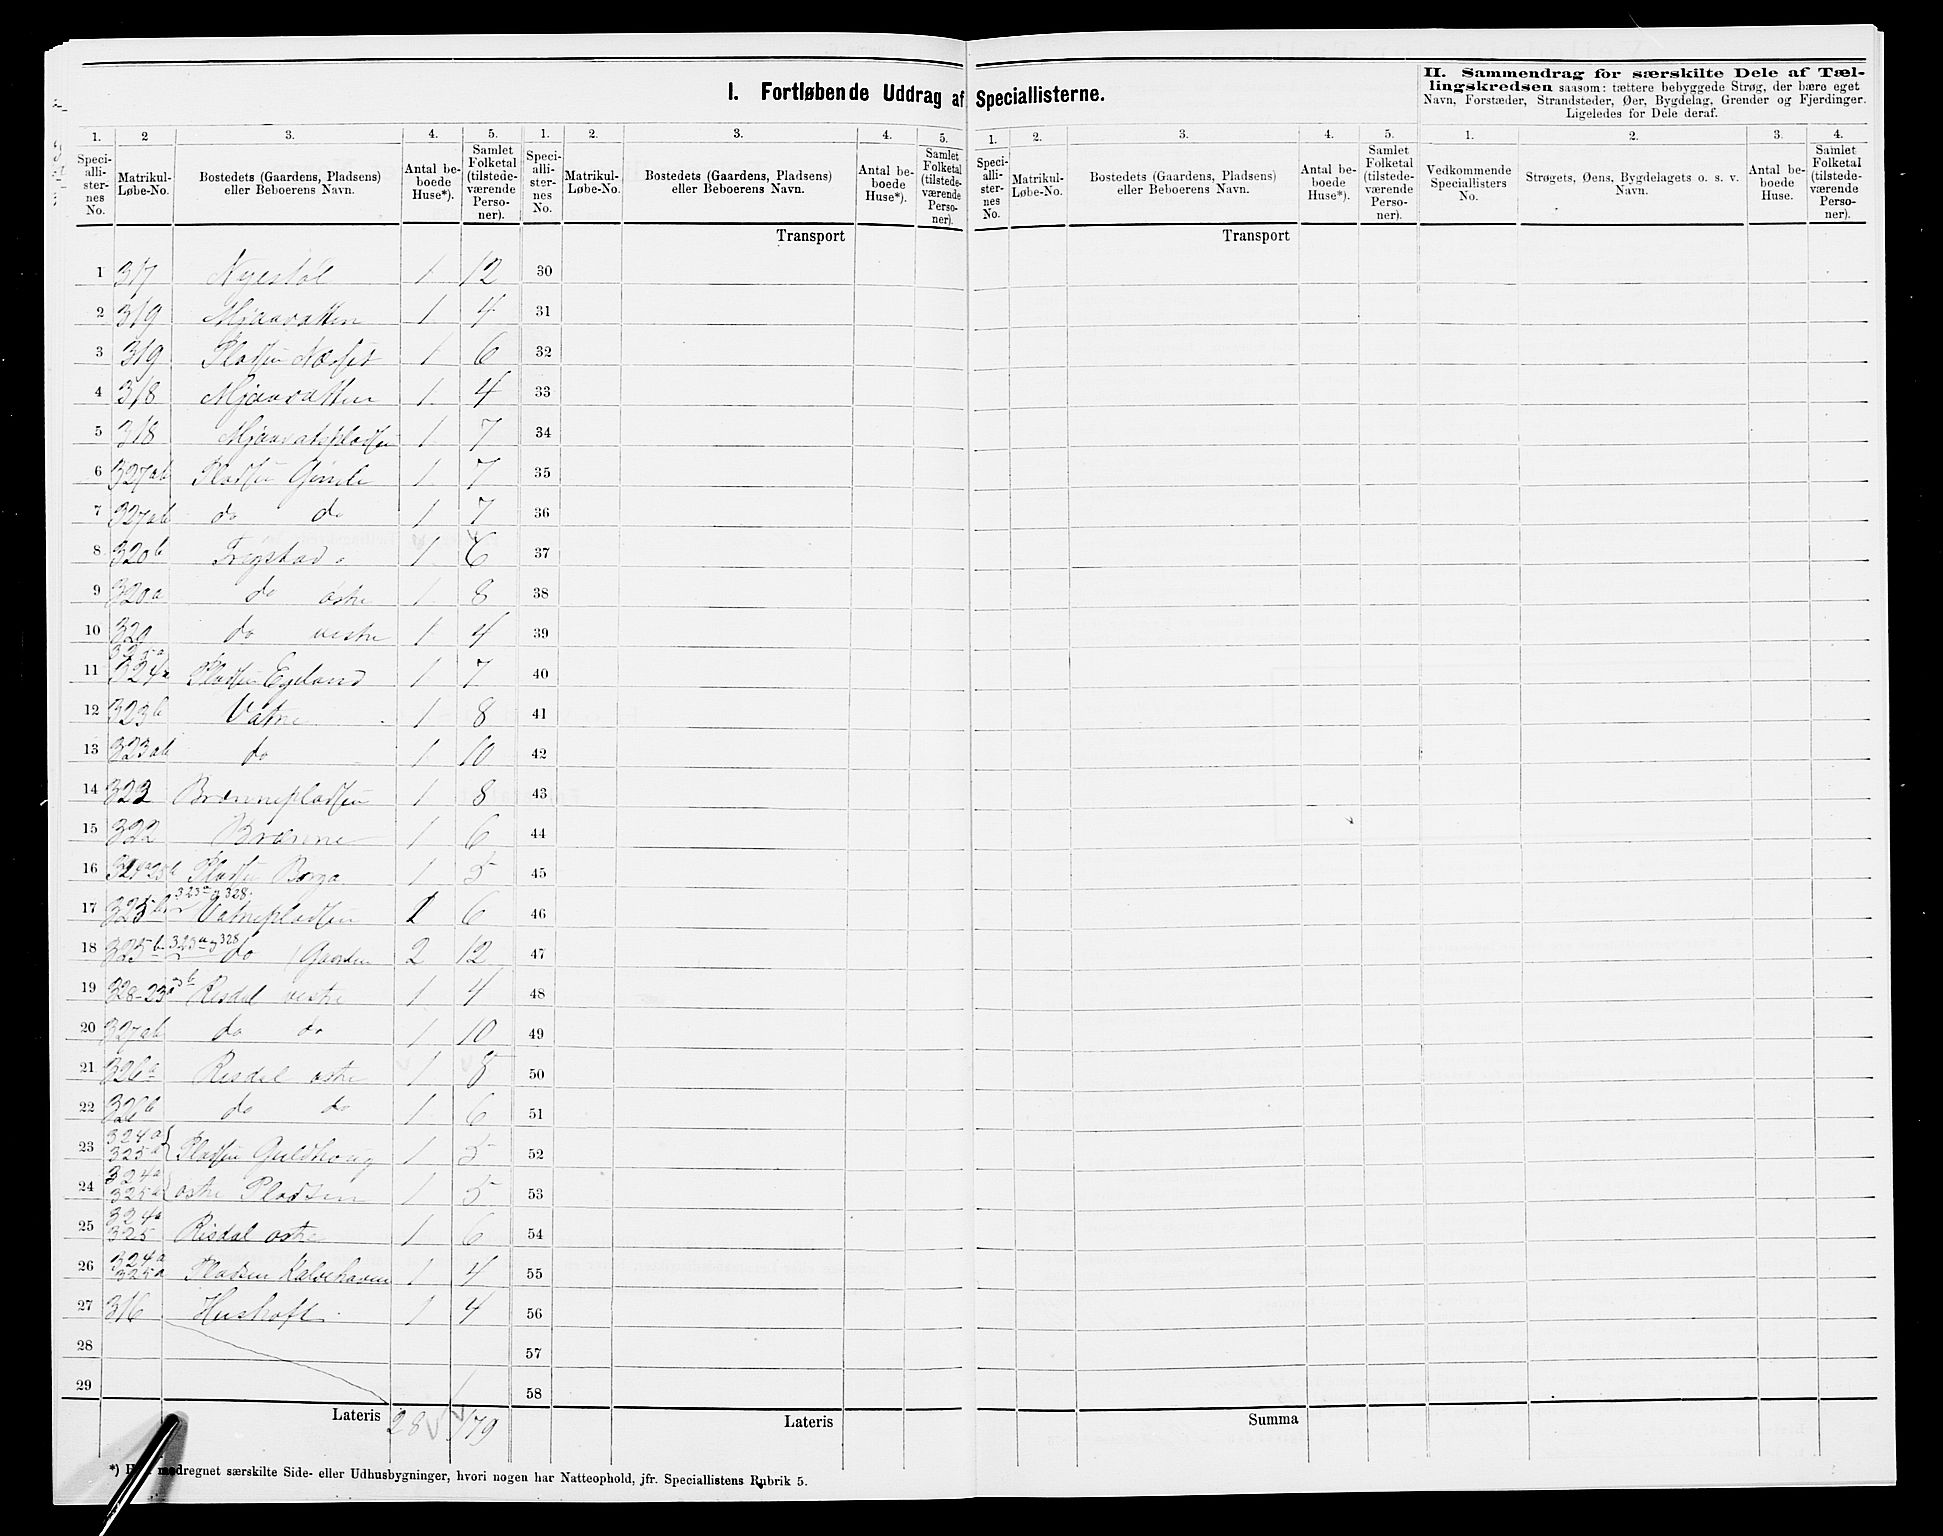 I. Fortløbende Uddrag af Speciallisterne.
II. Sammendrag for særskilte Dele af Tæl-
lingskredsen saasom: tættere bebyggede Strøg, der bære eget
Navn, Forstæder, Strandsteder, Øer, Bygdelag, Grender og Fjerdinger.
Ligeledes for Dele deraf.
1. 2 3. 4. 5. 1. 2. 3. 4. 5. 1. 2. 3. 4. 5. 1. 2. 3. 4.
Speci-alli-ster-nes No. Matrikul-Løbe-No. Bostedets (Gaardens, Pladsens) eller Beboerens Navn. Antal be-boede Huse*). Samlet Folketal (tilstede-værende Perso-ner).
Speci-alli-ster-nes No. Matrikul-Løbe-No. Bostedets (Gaardens, Pladsens) eller Beboerens Navn. Antal be-boede Huse*). Samlet Folketal (tilstede-værende Perso-ner).
Speci-alli-ster-nes No. Matrikul-Løbe-No. Bostedets (Gaardens, Pladsens) eller Beboerens Navn. Antal be-boede Huse*). Samlet Folketal (tilstede-værende Perso-ner).
Vedkommende Speciallisters No. Strøgets, Øens, Bygdelagets o. s. v. Navn. Antal be-boede Huse. Samlet Folketal (tilstede-værende Perso-ner).
Transport Transport
1 317 Nyestøl 1 12 30
2 319 Mjaavatten 1 4 31
3 319 Pladsen Næsset 1 6 32
4 318 Mjaavatten 1 4 33
5 318 Mjaavatspladsen 1 7 34
6 327ab Pladsen Gimle 1 7 35
7 327ab do do 1 7 36
8 320b Frigstad 1 6 37
9 320a do østre 1 8 38
10 320 do vestre 1 4 39
11 325a 324a Pladsen Egeland 1 7 40
12 323b Vatne 1 8 41
13 323ab do 1 10 42
14 322 Brænnepladsen 1 8 43
15 322 Brænne 1 6 44
16 Pladsen 1 5 45
17 325b 323a og 328 Vatnepladsen 1 6 46
18 325b 323a og 328 do (Gaarden 2 12 47
19 328-23 Risdal vestre 1 4 48
20 327ab do do 1 10 49
21 326a Risdal østre 1 8 50
22 326b do do 1 6 51
23 324a 325a Pladsen Guldhoug 1 5 52
24 324a 325a østre Pladsen 1 5 53
25 324a 325 Risdal østre 1 6 54
26 324a 325a Pladsen Kalvehaven 1 4 55
27 316 Husloft 1 4 56
28 57
29 58
Lateris 28 179 Lateris Summa
*) medregnet særskilte Side- eller Udhusbygninger, hvori nogen har Natteophold, jfr. Speciallistens Rubrik 5.